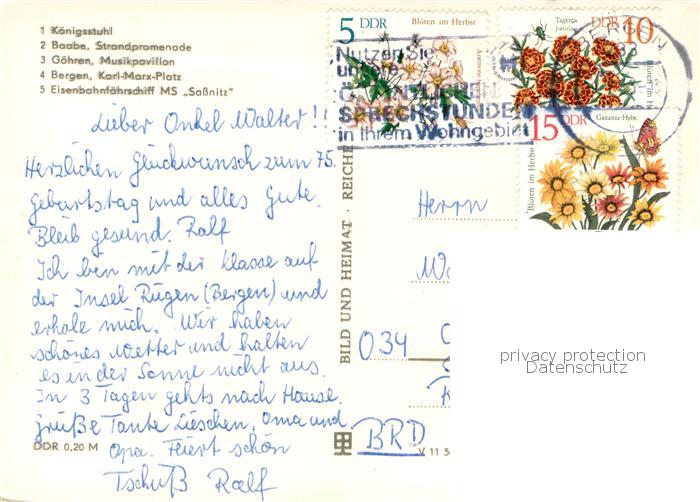 1 Königsstuhl
2 Baabe, Strandpromenade
3 Göhren, Musikpavillon
4 Bergen, Karl-Marx-Platz
5 Eisenbahnfährschiff MS „Saßnitz"
Lieber Onkel Walter!!
Herzlichen Glückwunsch zum 75.
Geburtstag und alles Gute.
Bleib gesund. Ralf
Ich bin mit der Klasse auf
der Insel Rügen (Bergen) und
erhole mich. Wir haben
schönes Wetter und halten
es in der Sonne nicht aus.
In 3 Tagen gehts nach Hause.
grüße Tante Lieschen, Oma und
Opa. Feiert schön
Tschüß Ralf
DDR 0,20 M
BILD UND HEIMAT · REICHE
V 11 5
5 DDR
Blüren im Herbst
DDR 10
Tagetes
Blüren im H
15 DDR
Gazania-Hybr.
Blüren im Herbst
Nutzen Sie
SPRECHSTUNDEN
in Ihrem Wohngebiet
BERGEN
Herrn
034
BRD
privacy protection
Datenschutz